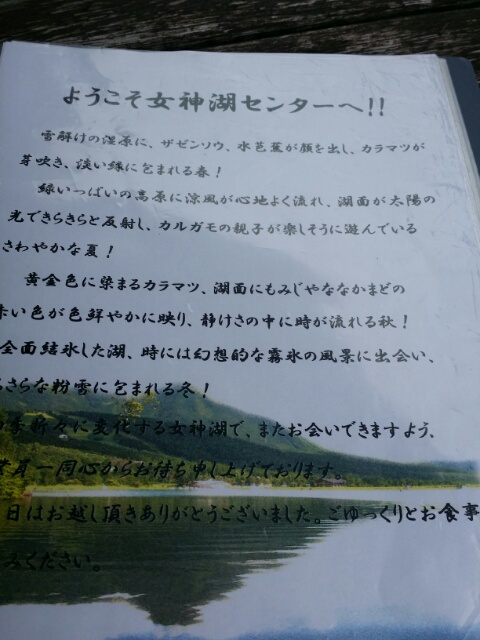 ようこそ女神湖センターへ!!
雪解けの湿原に、ザゼンソウ、水芭蕉が顔を出し、カラマツが
芽吹き、淡い緑に包まれる春!
緑いっぱいの高原に涼風が心地よく流れ、湖面が太陽の
光できらきらと反射し、カルガモの親子が楽しそうに遊んでいる
さわやかな夏!
黄金色に染まるカラマツ、湖面にもみじやななかまどの
赤い色が色鮮やかに映り、静けさの中に時が流れる秋!
全面結氷した湖、時には幻想的な霧氷の風景に出会い、
らさらな粉雪に包まれる冬!
季折々に変化する女神湖で、またお会いできますよう、
業員一同心からお待ち申し上げております。
日はお越し頂きありがとうございました。ごゆっくりとお食事
みください。